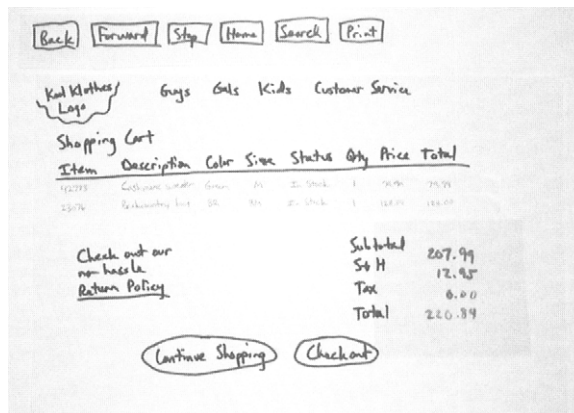 Back Forward Stop Home Search Print
Kool Klothes Logo
Guys Gals Kids Customer Service
Shopping Cart
Item Description Color Size Status Qty Price Total
Cashmere sweater Green M In Stock 1
In Stock 1
Check out our
no hassle
Return Policy
Subtotal 207.99
S+H 12.95
Tax 0.00
Total 220.89
Continue Shopping Checkout